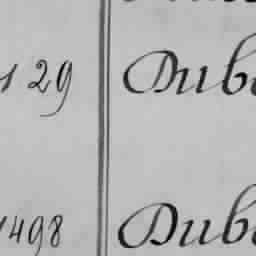 129 Dub
1498 Dub